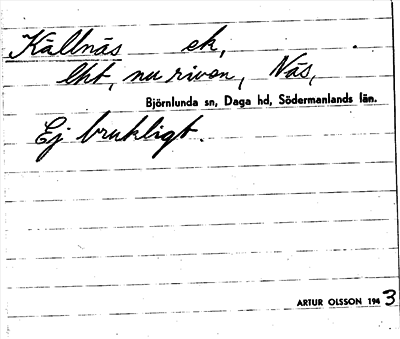 Källnäs ek,
lht, nu riven, Näs,
Björnlunda sn, Daga hd, Södermanlands län.
Ej brukligt.
ARTUR OLSSON 1943